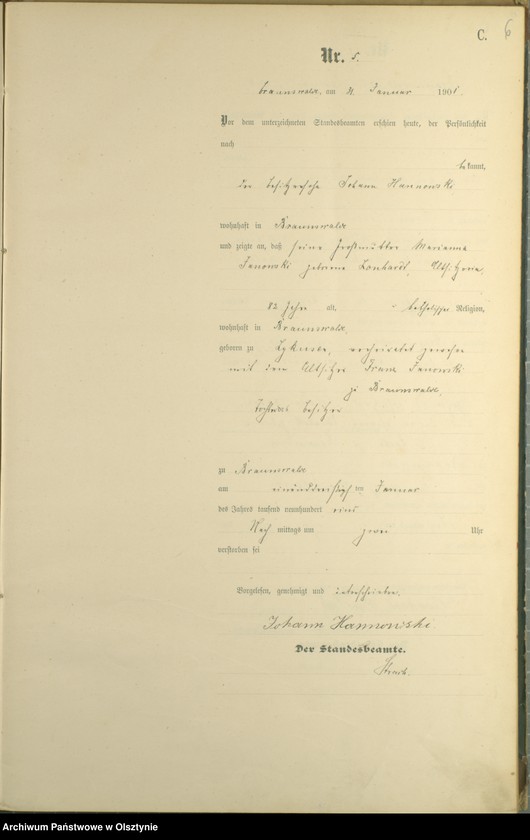 C. 6
Nr. 5.
Braunswalde, am Januar 1901.
Vor dem unterzeichneten Standesbeamten erschien heute, der Persönlichkeit
nach
bekannt,
der Besitzersohn Johann Hannowski
wohnhaft in Braunswalde
und zeigte an, daß seine Großmutter Marianna
Janowski geborene Altsitzerin,
82 Jahre alt, katholischer Religion,
wohnhaft in Braunswalde,
geboren zu verheiratet gewesen
mit dem Altsitzer Franz Janowski
zu Braunswalde,
Besitzer
zu Braunswalde
am einunddreißigsten Januar
des Jahres tausend neunhundert eins
Nach mittags um zwei Uhr
verstorben sei
Vorgelesen, genehmigt und unterschrieben.
Johann Hannowski
Der Standesbeamte.
Archiwum Państwowe w Olsztynie